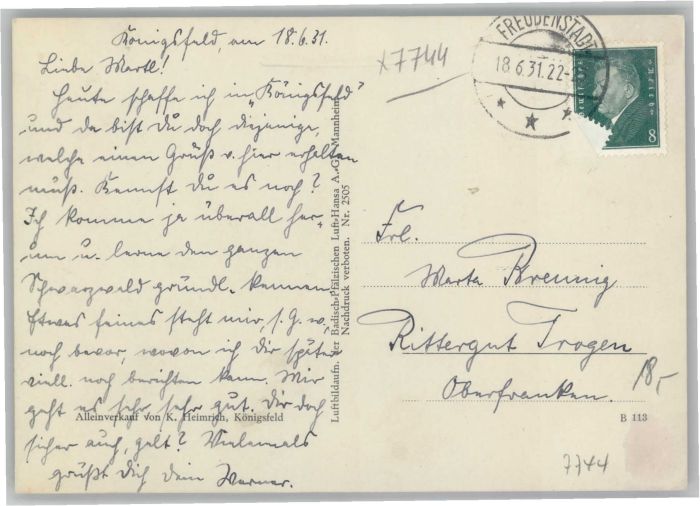 Königsfeld, am 18.6.31.
Liebe Martl!
Heute schaffe ich in „Königsfeld"
und da bist Du doch diejenige,
welche einen Gruß v. hier erhalten
muß. Kennst Du es noch?
Ich komme ja überall her-
um u. lerne den ganzen
Schwarzwald gründl. kennen.
Etwas feines steht mir, s. G. w,
noch bevor, wovon ich dir später
viell. noch berichten kann. Mir
geht es sehr sehr gut. Dir doch
sicher auch, gelt? Vielemals
grüßt Dich dein Werner.
Alleinverkauf von K. Heimrich, Königsfeld
Luftbildaufn. der Badisch-Pfälzischen Luft-Hansa A.-G. Mannheim
Nachdruck verboten. Nr. 2505
x7744
FREUDENSTADT
18.6.31.22-
8
Frl.
Marta
Rittergut Trogen
Oberfranken.
18,-
B 113
7744